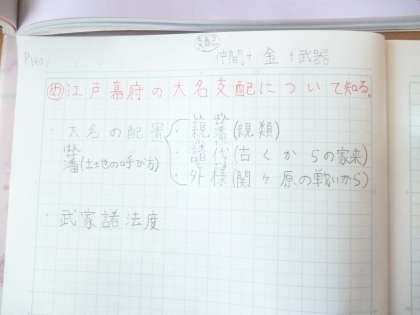 仲間 + 金 + 武器
め 江戸幕府の大名支配について知る。
・大名の配置
・親藩(親類)
藩(土地の呼び方)
・譜代(古くからの家来)
・外様(関ヶ原の戦いから)
・武家諸法度